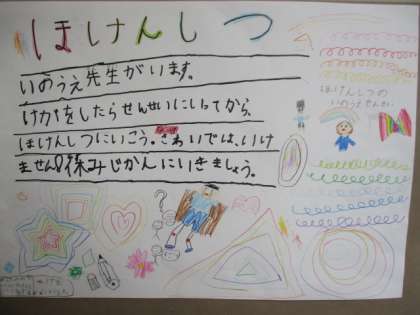 ほけんしつ
いのうえ先生がいます。
けがをしたらせんせいにいってから、
ほけんしつにいこう。
ません!休みじかんにいきましょう。
ほけんしつの
いのうえせんせい